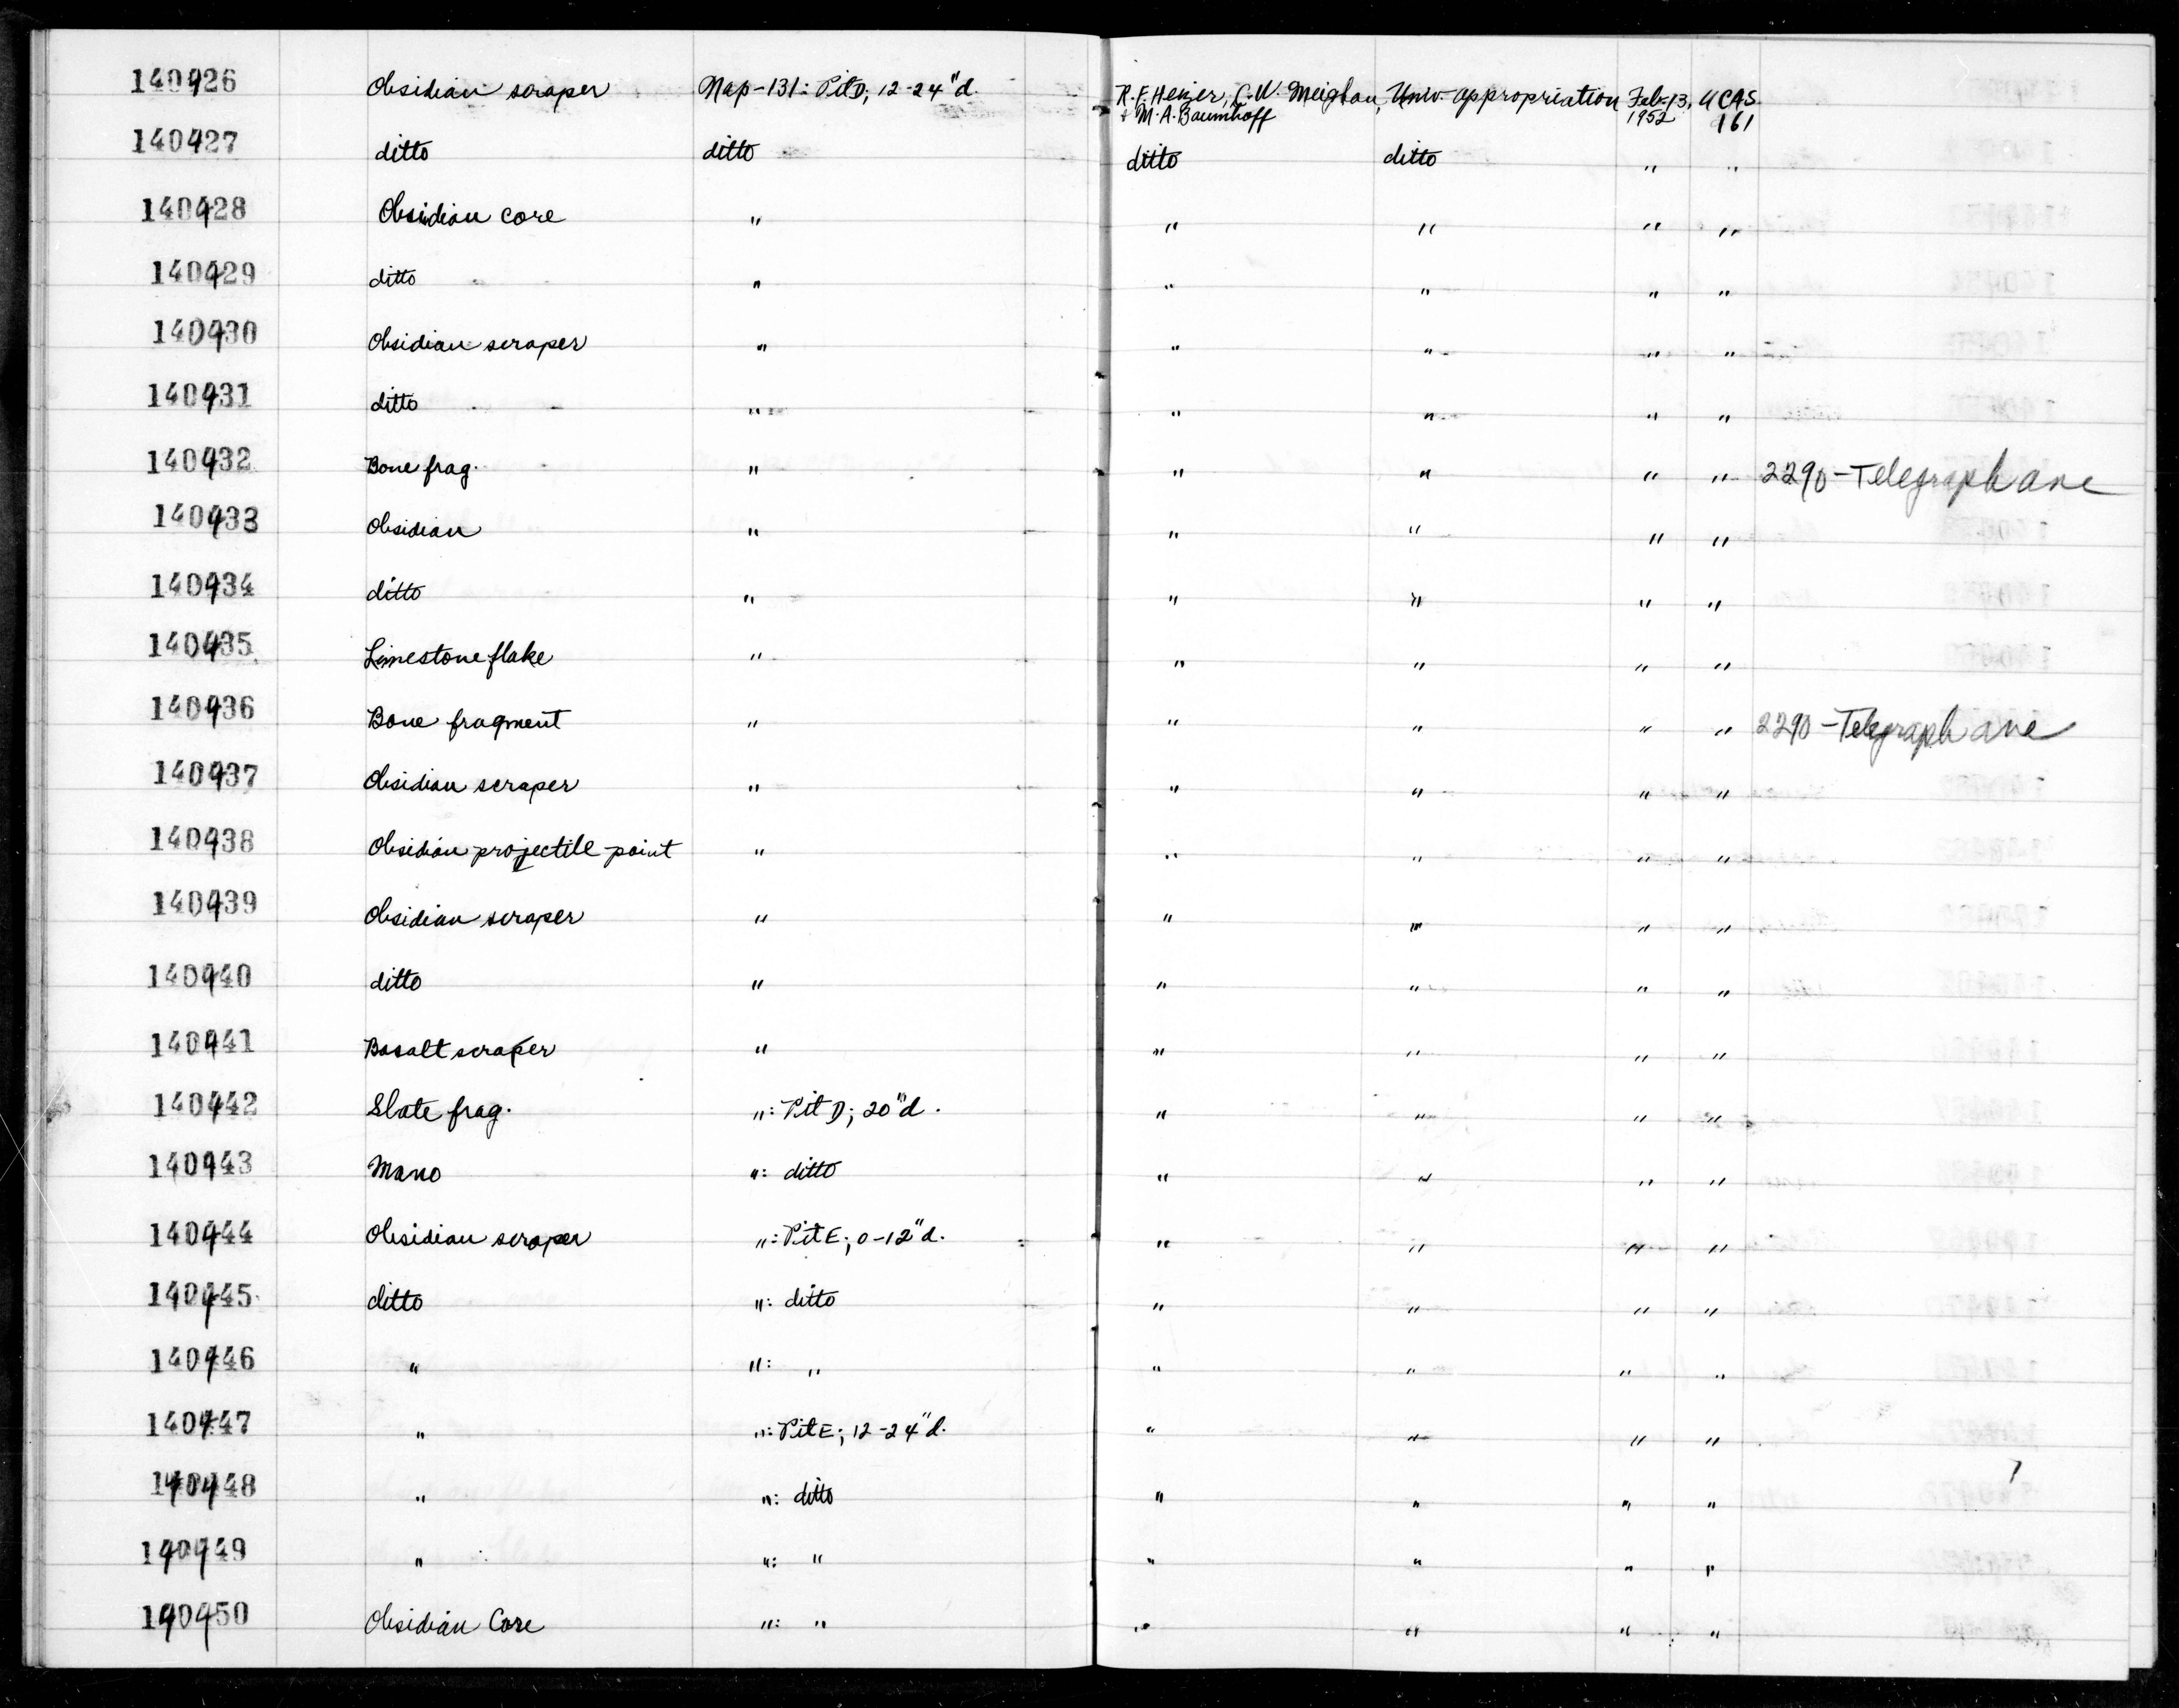 140426 Obsidian scraper Nap-131: Pit D; 12-24"d. R.F. Heizer, C.W. Meighan, Univ. appropriation Feb. 13, UCAS
+ M.A. Baumhoff 1952 161
140427 ditto ditto ditto ditto " "
140428 Obsidian core " " " " "
140429 ditto " " " " "
140430 Obsidian scraper " " " " "
140431 ditto " " " " "
140432 Bone frag. " " " " " 2290-Telegraph ave
140433 Obsidian " " " " "
140434 ditto " " " " "
140435 Limestone flake " " " " "
140436 Bone fragment " " " " " 2290-Telegraph ave
140437 Obsidian scraper " " " " "
140438 Obsidian projectile point " " " " "
140439 Obsidian scraper " " " " "
140440 ditto " " " " "
140441 Basalt scraper " " " " "
140442 Slate frag. ": Pit D; 20"d. " " " "
140443 Mano ": ditto " " " "
140444 Obsidian scraper ": Pit E; 0-12"d. " " " "
140445 ditto ": ditto " " " "
140446 " ": " " " " "
140447 " ": Pit E; 12-24"d. " " " "
140448 " ": ditto " " " "
140449 " ": " " " " "
140450 Obsidian Core ": " " " " "